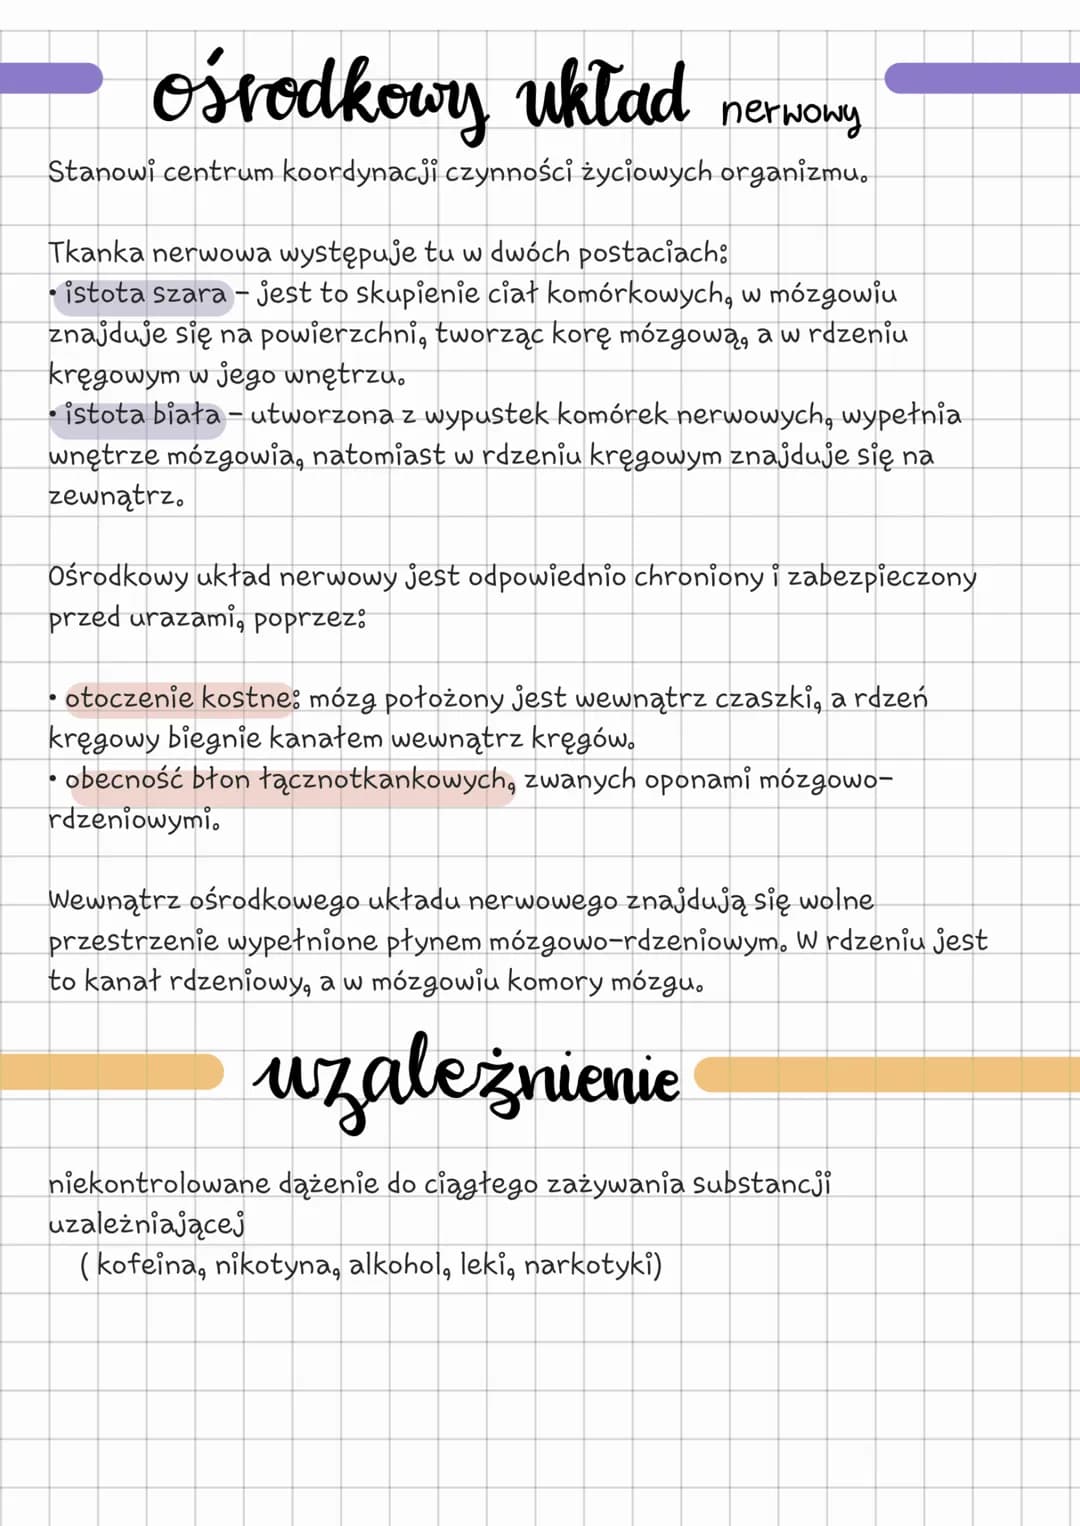 ośrodkowy układ nerwowy
Stanowi centrum koordynacji czynności życiowych organizmu.
Tkanka nerwowa występuje tu w dwóch postaciach:
• istota szara - jest to skupienie ciał komórkowych, w mózgowiu
znajduje się na powierzchni, tworząc korę mózgową, a w rdzeniu
kręgowym w jego wnętrzu.
• istota biała - utworzona z wypustek komórek nerwowych, wypełnia
wnętrze mózgowia, natomiast w rdzeniu kręgowym znajduje się na
zewnątrz.
Ośrodkowy układ nerwowy jest odpowiednio chroniony i zabezpieczony
przed urazami, poprzez:
• otoczenie kostne: mózg położony jest wewnątrz czaszki, a rdzeń
kręgowy biegnie kanałem wewnątrz kręgów.
• obecność błon łącznotkankowych, zwanych oponami mózgowo-
rdzeniowymi.
Wewnątrz ośrodkowego układu nerwowego znajdują się wolne
przestrzenie wypełnione płynem mózgowo-rdzeniowym. W rdzeniu jest
to kanał rdzeniowy, a w mózgowiu komory mózgu.
uzależnienie
niekontrolowane dążenie do ciągłego zażywania substancji
uzależniającej
( kofeina, nikotyna, alkohol, leki, narkotyki)